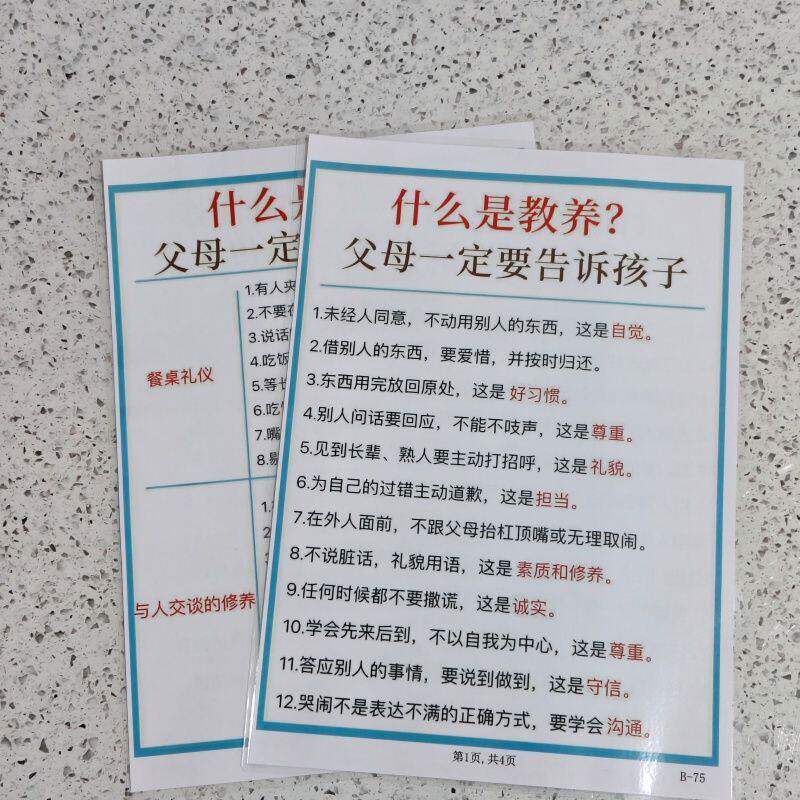 什么是教养？
父母一定要告诉孩子
1.未经人同意，不动用别人的东西，这是自觉。
2.借别人的东西，要爱惜，并按时归还。
3.东西用完放回原处，这是 好习惯。
4.别人问话要回应，不能不吱声，这是尊重。
5.见到长辈、熟人要主动打招呼，这是礼貌。
6.为自己的过错主动道歉，这是担当。
7.在外人面前，不跟父母抬杠顶嘴或无理取闹。
8.不说脏话，礼貌用语，这是 素质和修养。
9.任何时候都不要撒谎，这是诚实。
10.学会先来后到，不以自我为中心，这是尊重。
11.答应别人的事情，要说到做到，这是守信。
12.哭闹不是表达不满的正确方式，要学会 沟通。
第1页, 共4页
B-75
什么
父母一定
餐桌礼仪
1.有人夹
2.不要在
3.说话
4.吃饭
5.等长
6.吃
7.嘴
8.剔
与人交谈的修养
1.
2